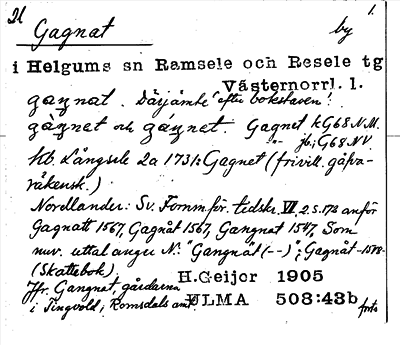 Gagnat by 1.
i Helgums sn Ramsele och Resele tg
Västernorrl. l.
gaŋnat. Därjämte "efter bokstaven":
gàŋnet och gáŋnet. Gagnet kG68N.M.
"- jb; G68NV
Hb. Långsele 2a 1731: Gagnet (frivill. gåfva-
räkensk.)
Nordlander: Sv. Fornm.för. tidskr. VI, 2. s. 178 anför
Gagnatt 1567, Gagnåt 1567, Gangnat 1547. Som
nuv. uttal anger N: "Gangnät (--)"; Gagnåt -1578-
(Skattebok).
Jfr. Gangnat, gårdarna
i Tingvold, Romsdals amt.
H.Geijer 1905
ULMA 508:43b foto